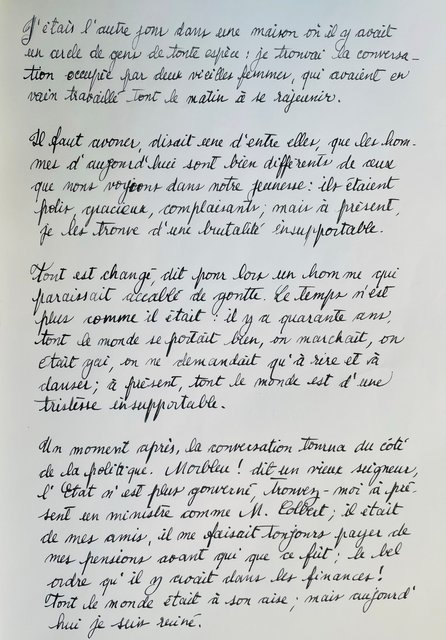 J'étais l'autre jour dans une maison où il y avait
un cercle de gens de toute espèce : je trouvai la conversa-
tion occupée par deux vieilles femmes, qui avaient en
vain travaillé tout le matin à se rajeunir.
Il faut avouer, disait une d'entre elles, que les hom-
mes d'aujourd'hui sont bien différents de ceux
que nous voyions dans notre jeunesse : ils étaient
polis, gracieux, complaisants ; mais à présent,
je les trouve d'une brutalité insupportable.
Tout est changé, dit pour lors un homme qui
paraissait accablé de goutte. Le temps n'est
plus comme il était : il y a quarante ans,
tout le monde se portait bien, on marchait, on
était gai, on ne demandait qu'à rire et à
danser ; à présent, tout le monde est d'une
tristesse insupportable.
Un moment après, la conversation tourna du côté
de la politique. Morbleu ! dit un vieux seigneur,
l'Etat n'est plus gouverné, trouvez-moi à pré-
sent un ministre comme M. Colbert ; il était
de mes amis, il me faisait toujours payer de
mes pensions avant qui que ce fût ; le bel
ordre qu'il y avait dans les finances !
Tout le monde était à son aise ; mais aujourd'
hui je suis ruiné.